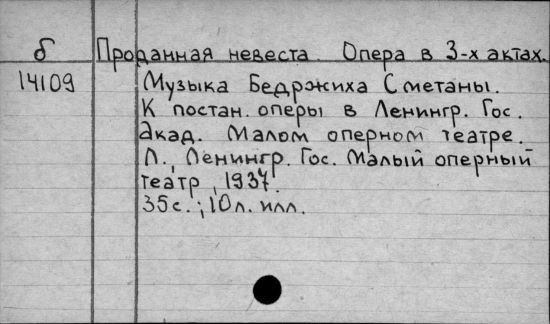 б Проданная невеста. Опера в 3-х актах.
14109 Музыка Бедржиха Сметаны.
К постан. оперы в Ленингр. Гос.
Акад. Малом оперном театре. _
Л., Ленингр. Гос. Малый оперный
театр, 1937.
35с.; 10л. илл.